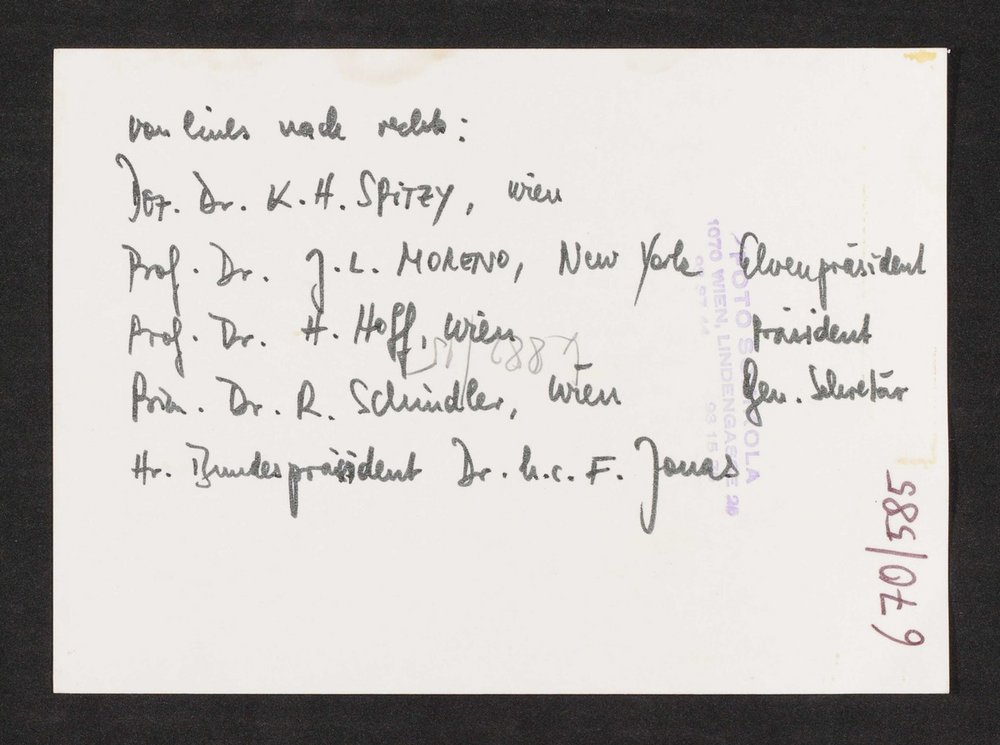 von links nach rechts:
Doz. Dr. K. H. SPITZY, Wien
Prof. Dr. J. L. MORENO, New York Ehrenpräsident
Prof. Dr. H. Hoff, Wien Präsident
Prim. Dr. R. Schindler, Wien Gen. Sekretär
Hr. Bundespräsident Dr. h.c. F. Jonas
FOTO
1070 WIEN, LINDENGASSE 26
670/585